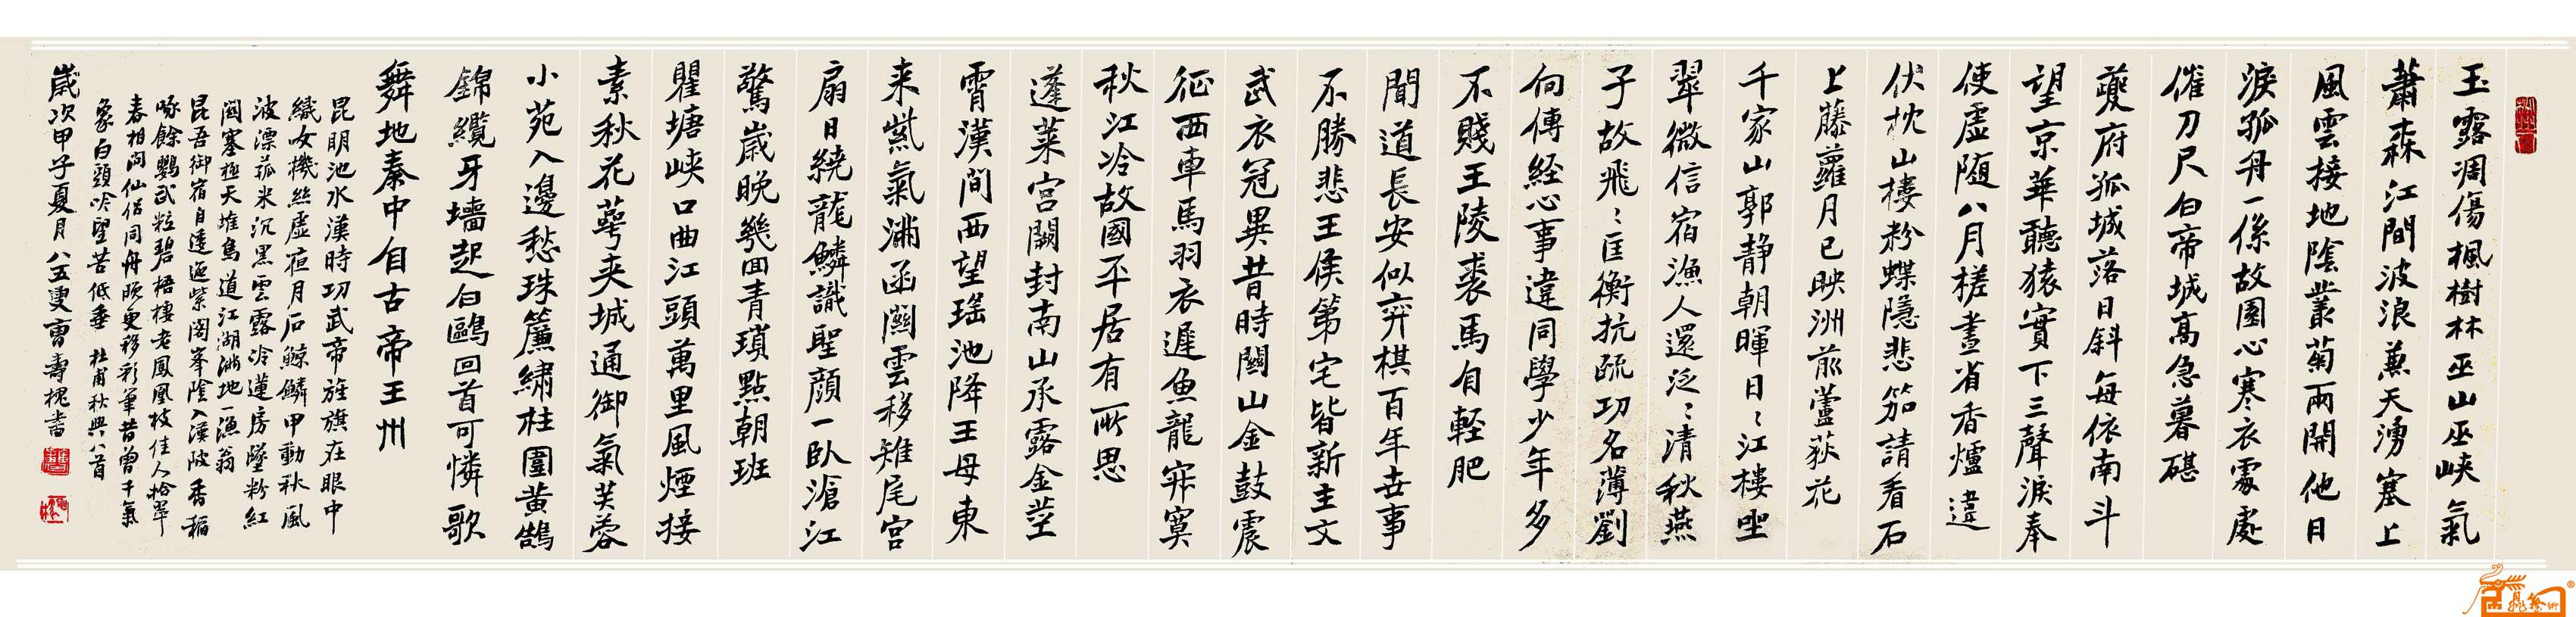 玉露凋傷楓樹林巫山巫峽氣
蕭森江間波浪兼天湧塞上
風雲接地陰叢菊兩開他日
淚孤舟一係故園心寒衣處處
催刀尺白帝城高急暮碪
夔府孤城落日斜每依南斗
望京華聽猿實下三聲淚奉
使虛隨八月槎畫省香爐違
伏枕山樓粉蝶隱悲笳請看石
上藤蘿月已映洲前蘆荻花
千家山郭靜朝暉日〻江樓坐
翠微信宿漁人還泛〻清秋燕
子故飛〻匡衡抗疏功名薄劉
向傳經心事違同學少年多
不賤王陵裘馬自輕肥
聞道長安似弈棋百年世事
不勝悲王侯第宅皆新主文
武衣冠異昔時關山金鼓震
征西車馬羽衣遲魚龍寂寞
秋江冷故國平居有所思
蓬萊宮闕封南山承露金莖
霄漢間西望瑤池降王母東
来紫氣滿函關雲移雉尾宮
扇日繞龍鱗識聖顔一臥滄江
驚歲晚幾回青瑣點朝班
瞿塘峽口曲江頭萬里風煙接
素秋花萼夹城通御氣芙蓉
小苑入邊愁珠簾繡柱圍黄鵠
錦纜牙墻起白鷗回首可憐歌
舞地秦中自古帝王州
昆明池水漢時功武帝旌旗在眼中
織女機絲虛夜月石鯨鱗甲動秋風
波漂菰米沉黑雲露冷蓮房墜粉紅
關塞極天惟鳥道江湖滿地一漁翁
昆吾御宿自逶迤紫閣峯陰入渼陂香稻
啄餘鸚武粒碧梧棲老鳳凰枝佳人拾翠
春相問仙侣同舟晚更移彩筆昔曾干氣
象白頭吟望苦低垂 杜甫秋興八首
歲次甲子夏月八五叟曹壽槐書